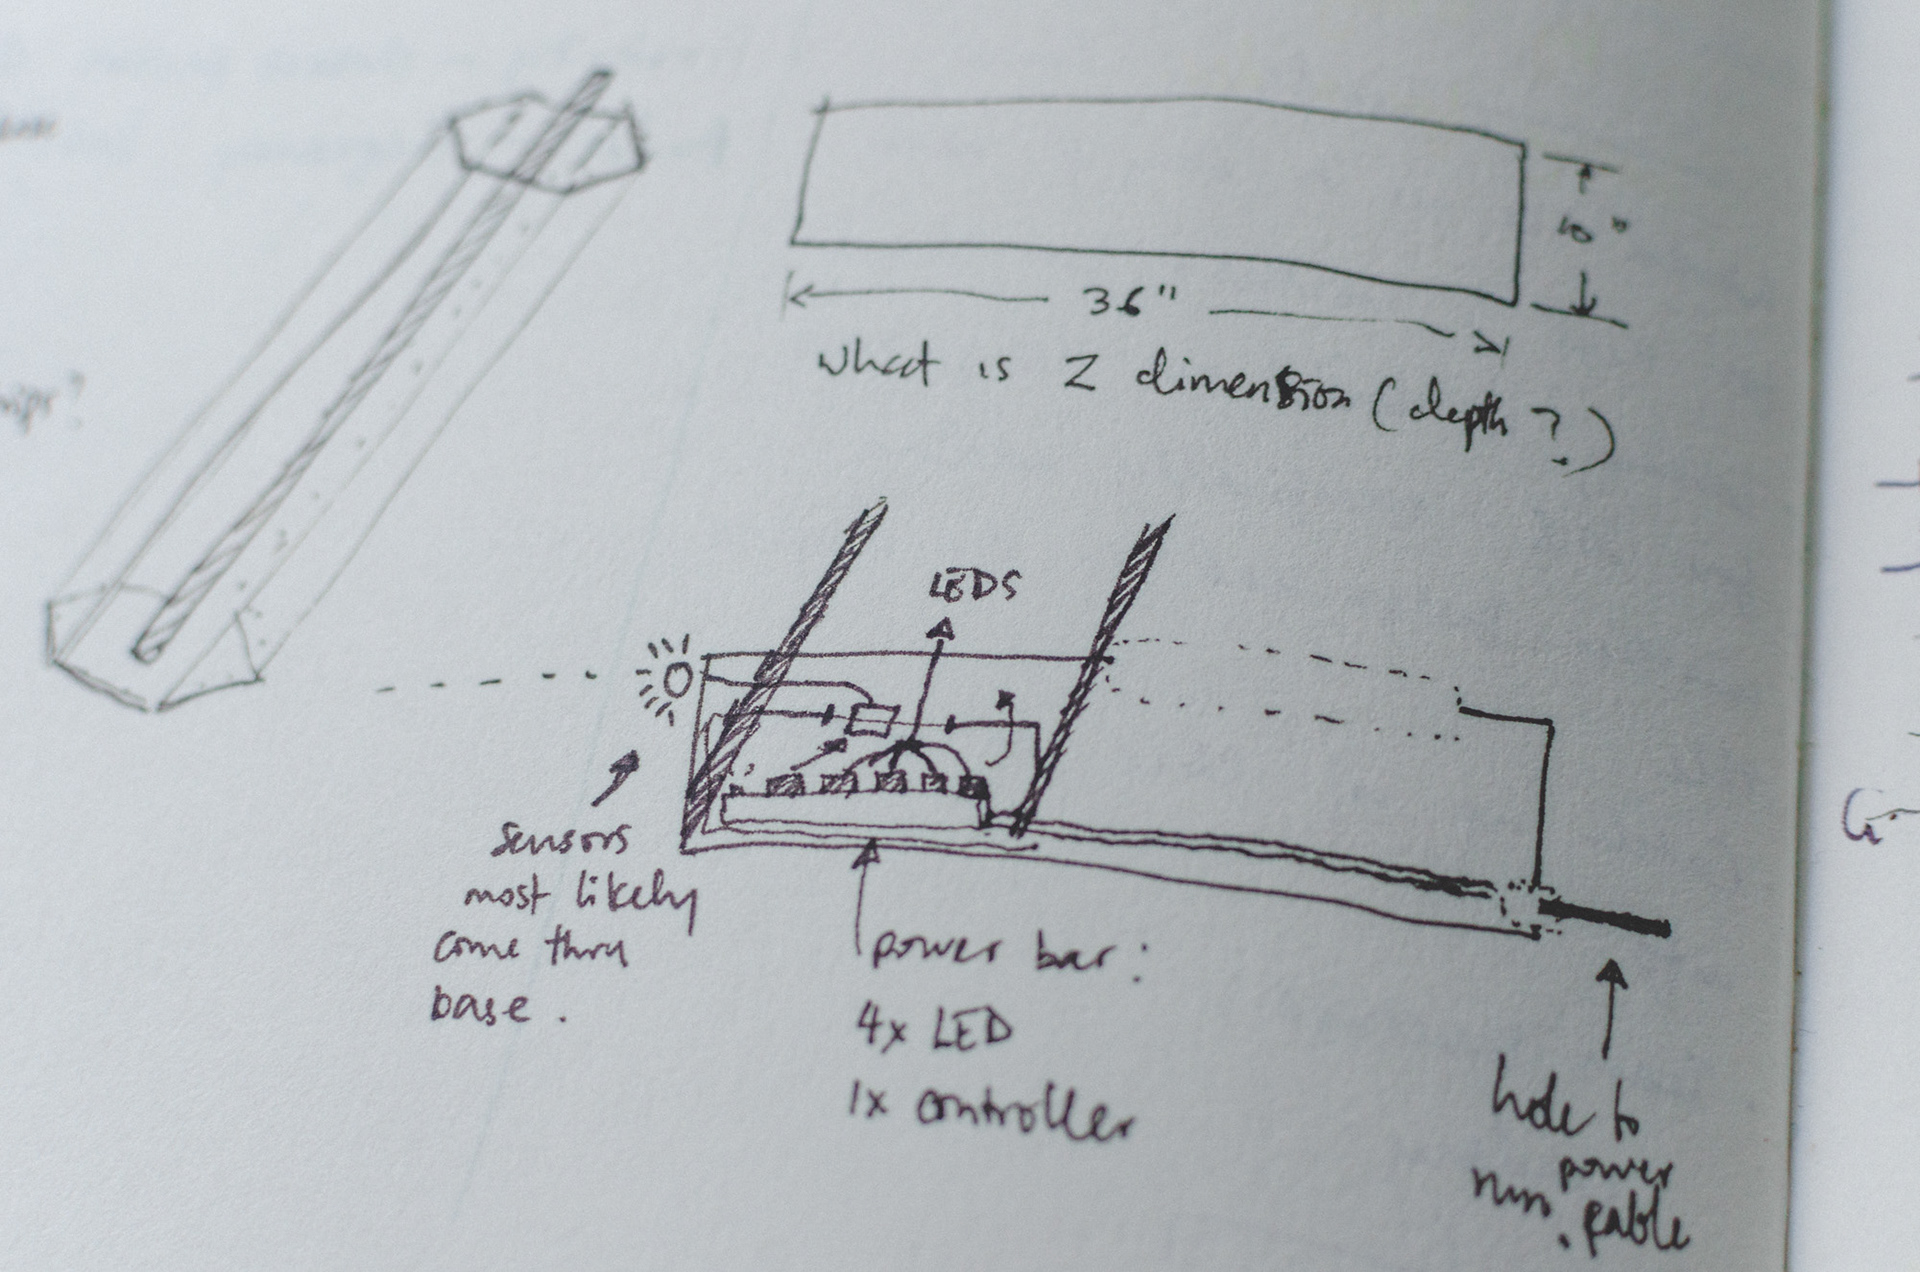 10"
36"
what is Z dimension (depth?)
LEDS
sensors
most likely
come thru
base.
power bar:
4x LED
1x controller
hole to
run power
cable